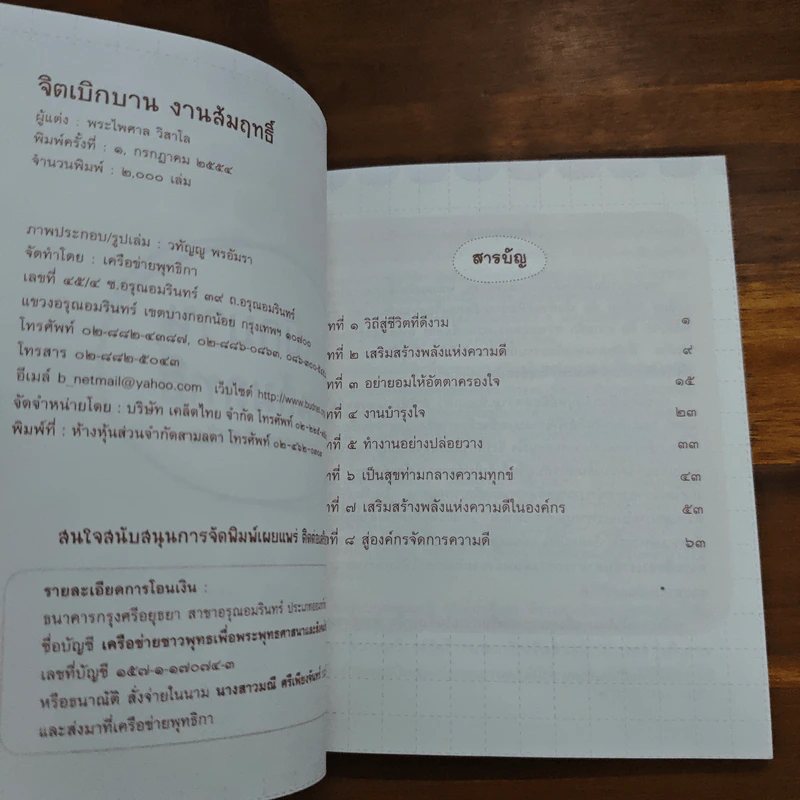 จิตเบิกบาน งานสัมฤทธิ์
ผู้แต่ง : พระไพศาล วิสาโล
พิมพ์ครั้งที่ : ๑, กรกฎาคม ๒๕๕๔
จำนวนพิมพ์ : ๒,๐๐๐ เล่ม
ภาพประกอบ/รูปเล่ม : วทัญญู พรอัมรา
จัดทำโดย : เครือข่ายพุทธิกา
เลขที่ ๔๕/๔ ซ.อรุณอมรินทร์ ๓๙ ถ.อรุณอมรินทร์
แขวงอรุณอมรินทร์ เขตบางกอกน้อย กรุงเทพฯ ๑๐๗๐๐
โทรศัพท์ ๐๒-๘๘๒-๔๓๘๗, ๐๒-๘๘๖-๐๘๖๓,
โทรสาร ๐๒-๘๘๒-๕๐๔๓
อีเมล์ b_netmail@yahoo.com เว็บไซต์
จัดจำหน่ายโดย : บริษัท เคล็ดไทย จำกัด โทรศัพท์
พิมพ์ที่ : ห้างหุ้นส่วนจำกัดสามลดา โทรศัพท์
สนใจสนับสนุนการจัดพิมพ์เผยแพร่
รายละเอียดการโอนเงิน :
ธนาคารกรุงศรีอยุธยา สาขาอรุณอมรินทร์
ชื่อบัญชี เครือข่ายชาวพุทธเพื่อพระพุทธศาสนา
เลขที่บัญชี ๑๕๗-๑-๑๗๐๗๔-๓
หรือธนาณัติ สั่งจ่ายในนาม นางสาวมณี
และส่งมาที่เครือข่ายพุทธิกา
สารบัญ
ที่ ๑ วิถีสู่ชีวิตที่ดีงาม ๑
ที่ ๒ เสริมสร้างพลังแห่งความดี ๙
ที่ ๓ อย่ายอมให้อัตตาครองใจ ๑๕
ที่ ๔ งานบำรุงใจ ๒๓
ที่ ๕ ทำงานอย่างปล่อยวาง ๓๓
ที่ ๖ เป็นสุขท่ามกลางความทุกข์ ๔๓
ที่ ๗ เสริมสร้างพลังแห่งความดีในองค์กร ๕๓
ที่ ๘ สู่องค์กรจัดการความดี ๖๓